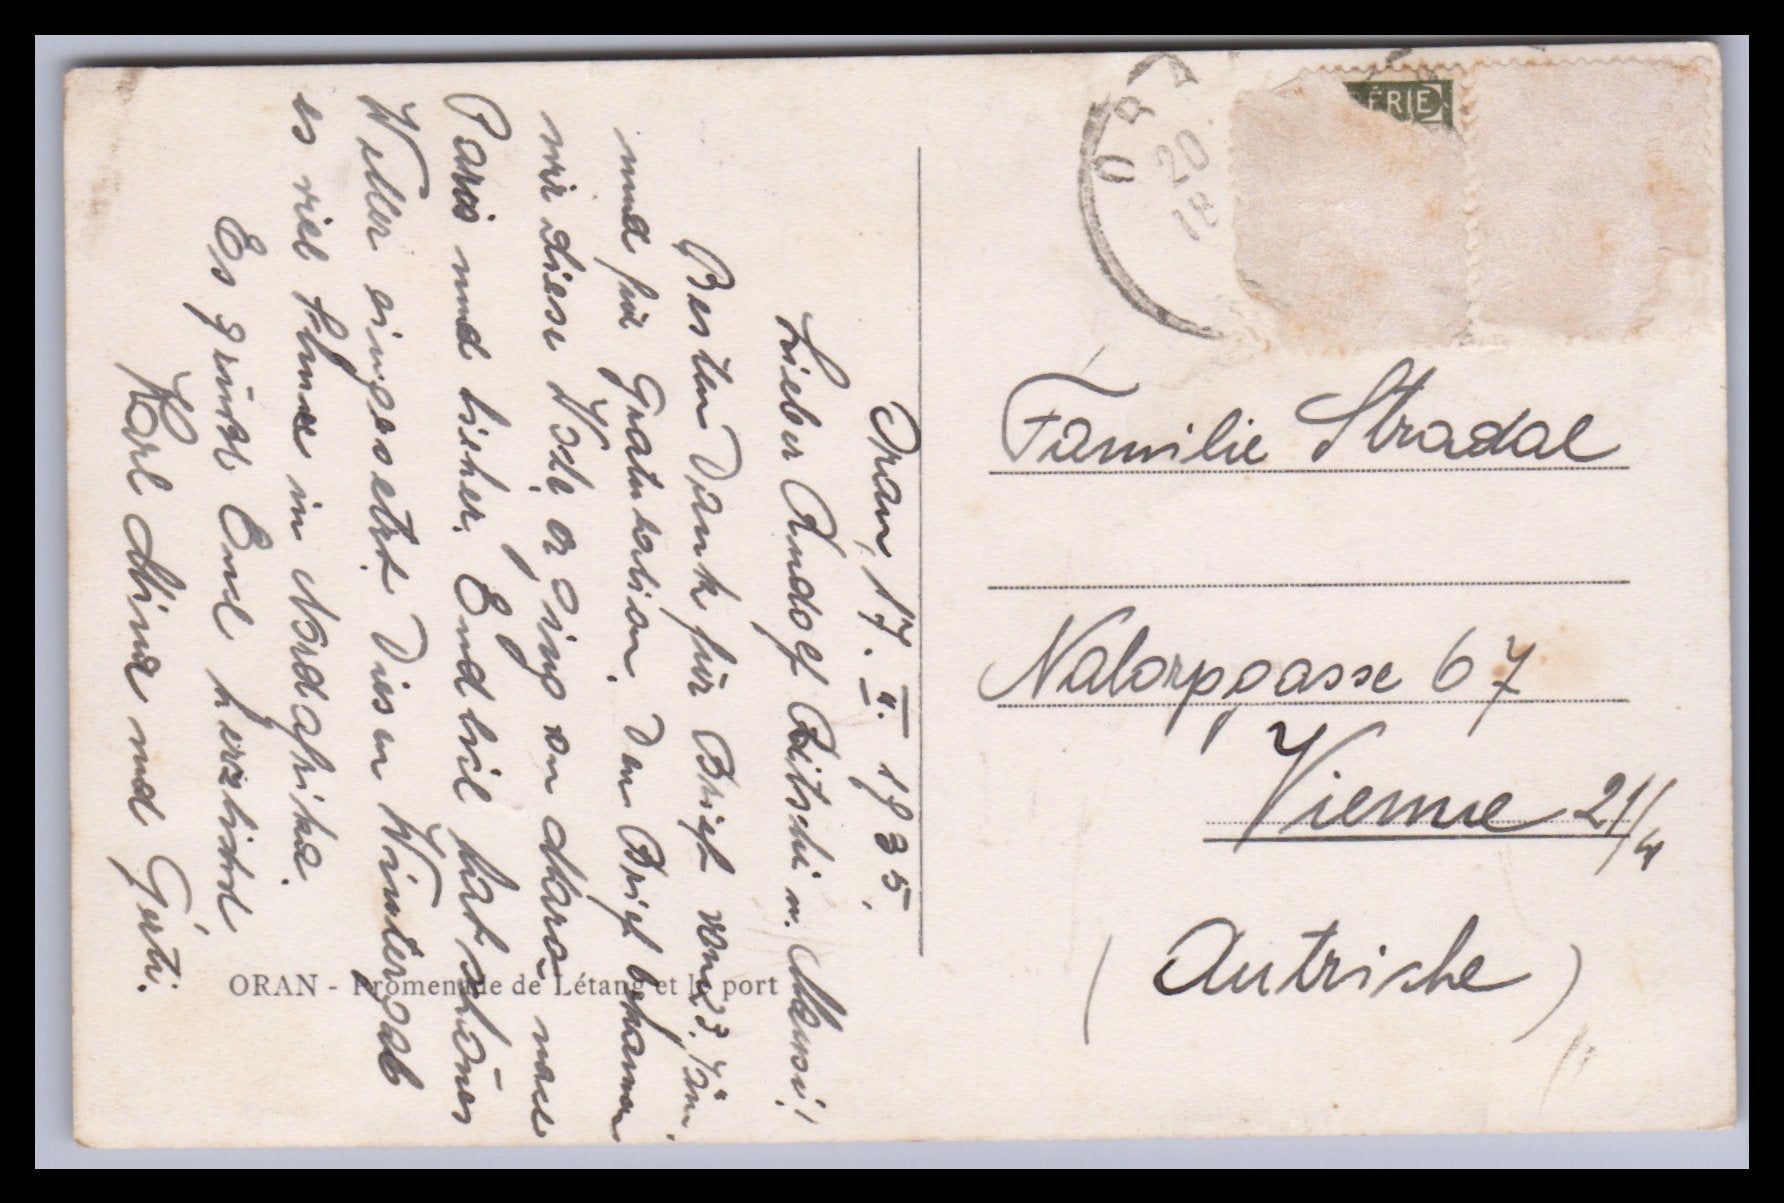 Oran, 17. II. 1935.
Lieber Rudolf Peitschi u. Mausi!
Besten Dank für Brief vom 3. Jän.
und für Gratulation. Den Brief bekamen
wir diese Woche er ging von Maro nach
Paris und hierher. Endlich hat schönes
Wetter eingesetzt. Diesen Winter gab
es viel Schnee in Nordafrika.
Es grüsst Euch herzlichst
Karl Mina und Gerti.
ORAN - Promenade de Létang et le port
ORA
20
18
ÉRIE
Familie Stradal
Natorpgasse 67
Vienne 21/4
(Autriche)